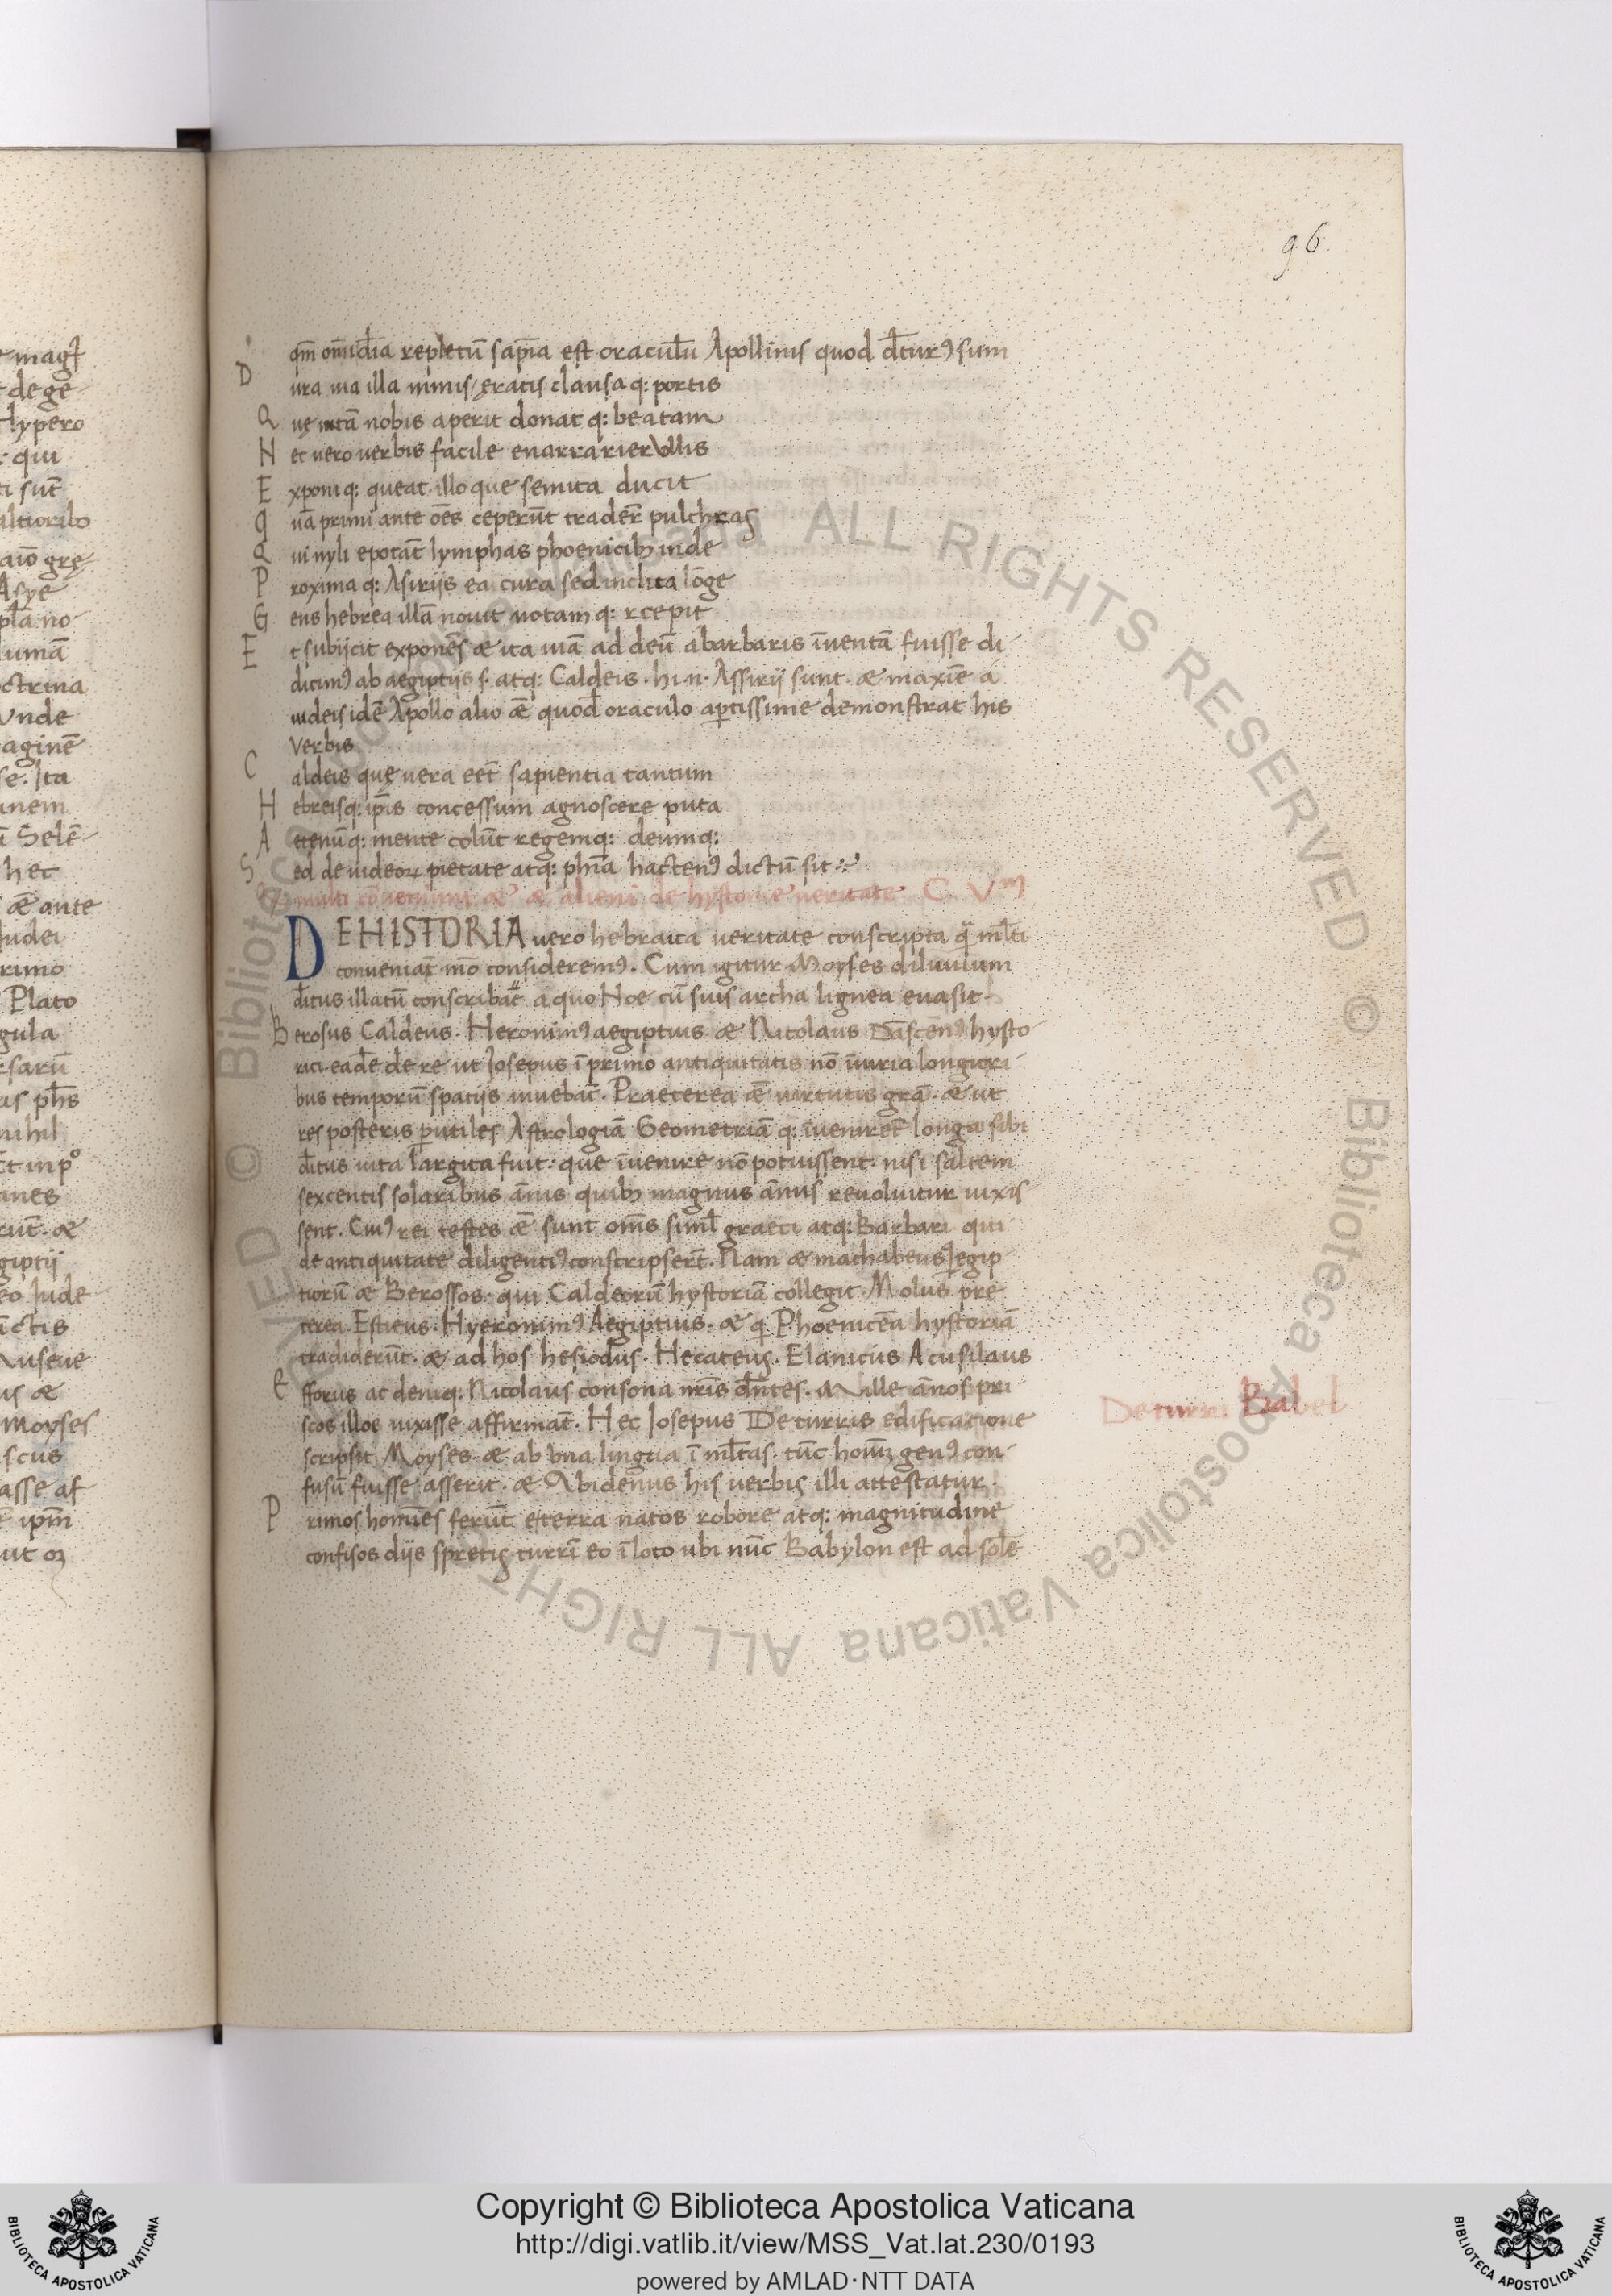 96
qm̄ om̄i dīa repletū sap̄ia est oraculū Apollinis quod dr̄tur sum
D ura uia illa nimis gratis clausa q: portis
Q uę uitā nobis aperit donat q: beatam
N ec uero uerbis facile enarrarier ullis
E xponi q: queat illo que semita ducit
q uā primi ante oēs ceperūt trader̄ pulchras
Q ui nyli epotāt lymphas phoenicib; inde
P roxima q: Asirijs ea cura sed inclita lōge
G ens hebrea illā nouit notam q: rcepit
E t subijcit exponēs æ ita uiā ad deū a barbaris īuentā fuisse di
dicimꝰ ab aegiptijs s. atq: Caldeis. hi n. Assirij sunt. æ maxīe a
iudeis idē Apollo alio ǣ quod oraculo apertissime demonstrat his
Verbis
C aldeis quę uera eēt sapientia tantum
H ebreisq: ip̄is concessum agnoscere puta
A eternū q: mente colūt regemq: deumq:
S ed de iudeoꝝ pietate atq: phīa hactenꝰ dictū sit
multi cōueniunt æ alieni de hystorie ueritate C. V
DE HISTORIA uero hebraica ueritate conscripta q̄ ml̄ti
conueniat̄ mō consideremꝰ. Cum igitur Moyses diluuium
d̄itus illatū conscribat̄ a quo Noe cū suis archa lignea euasit.
Berosus Caldeus. Heronimꝰ aegiptius æ Nicolaus Dāscenꝰ hysto
rici. eadē de re ut Josepus ī primo antiquitatis nō īiuria longiori
bus temporū spatijs uiuebāt. Praeterea ǣ uirtutis grā. æ ut
res posteris perutiles Astrologiā Geometriā q: īuenirēt longa sibi
d̄itus uita largita fuit. que īuenire nō potuissent. nisi saltem
sexcentis solaribus ānis quib; magnus ānus reuoluitur uixis
sent. Cuiꝰ rei testes ǣ sunt om̄s siml̄ graeci atq: Barbari qui
de antiquitate diligentiꝰ conscripserūt. Nam æ machabeus q̄ egip
tiorū æ Berossos. qui Caldeorū hystoriā collegit. Molus pre
terea. Estieus. Hyeronimꝰ Aegiptius. æ q̄ Phoenicēa hystoriā
tradiderūt. æ ad hos hesiodus. Hecateus. Elanicus Acusilaus
E fforus ac deniq: Nicolaus consona nr̄is dn̄tes. Mille ānos pri
scos illos uixisse affirmāt. Hec Josepus De turris edificatione
De turri Babel
scripsit Moyses. æ ab una lingua ī ml̄tas. tūc hom̄ genꝰ con
fusū fuisse asserit. æ Abidenus his uerbis illi attestatur
P rimos homīes ferūt e terra natos robore atq: magnitudine
confisos dijs spretis turrī eo ī loco ubi nūc Babylon est ad solē
Copyright © Biblioteca Apostolica Vaticana
http://digi.vatlib.it/view/MSS_Vat.lat.230/0193
powered by AMLAD·NTT DATA